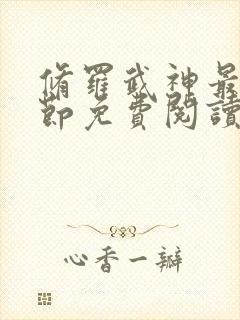 脩羅武神最
節免費閱讀
心香一瓣